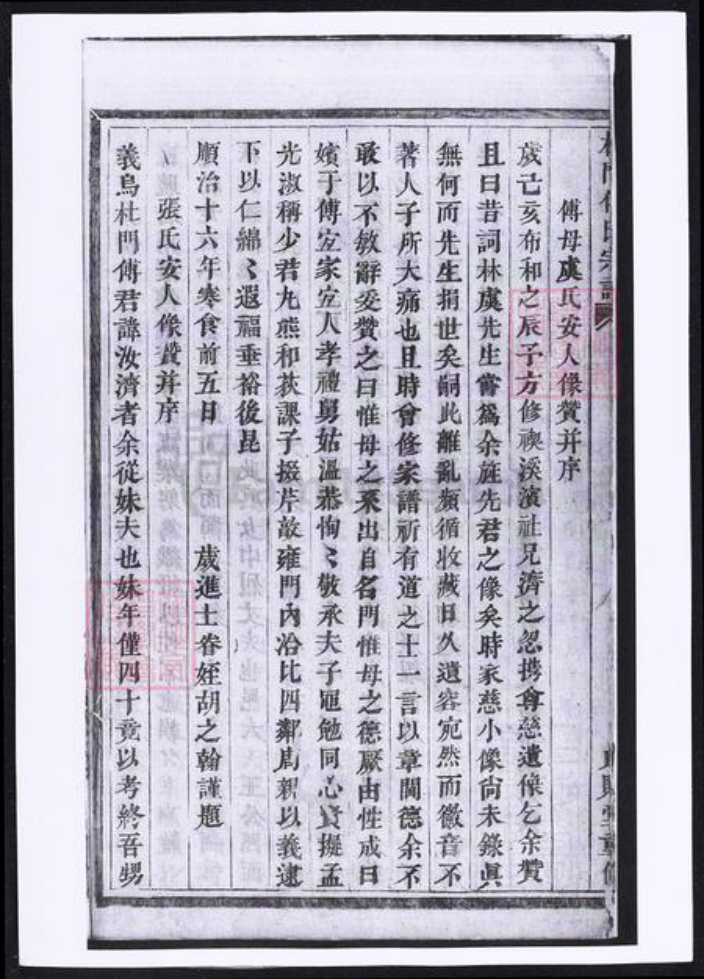 傅母虞氏安人像贊并序
歲己亥布和之辰予方修禊溪濱社兄濟之忽携尊慈遺像乞余贊
且曰昔詞林虞先生嘗爲余旌先君之像矣時家慈小像尚未錄眞
無何而先生捐世矣嗣此離亂頻循收藏日久遺容宛然而徽音不
著人子所大痛也且時會修家譜祈有道之士一言以章閫德余不
敢以不敏辭爰贊之曰惟母之來出自名門惟母之德厥由性成曰
嬪于傅宜家宜人孝禮舅姑溫恭恂〻敬承夫子黽勉同心賢擬孟
光淑稱少君九熊和荻課子掇芹敌雍門內洽比四鄰周親以義逮
下以仁綿〻遐福垂裕後昆
順治十六年寒食前五日 歲進士眷姪胡之翰謹題
張氏安人像贊并序
義烏杜門傅君諱汝濟者余從妹夫也妹年僅四十竟以考終吾甥